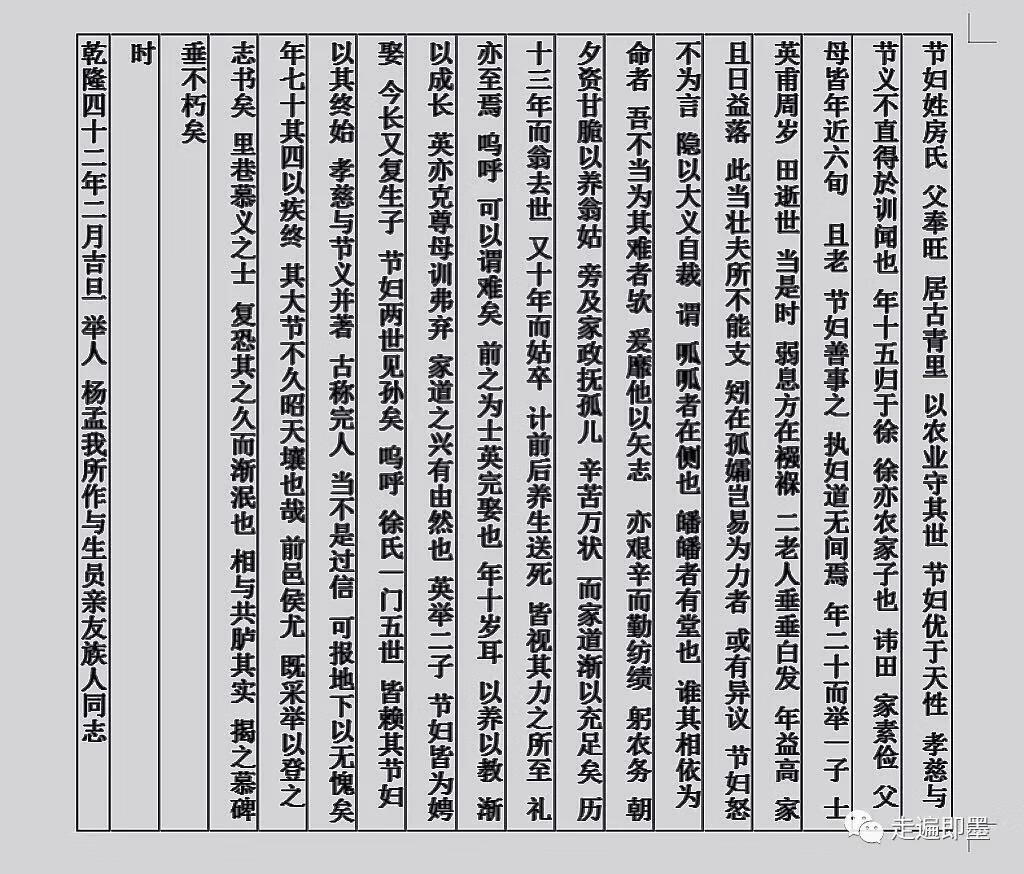 节妇姓房氏 父奉旺 居古青里 以农业守其世 节妇优于天性 孝慈与
节义不直得於训闻也 年十五归于徐 徐亦农家子也 讳田 家素俭 父
母皆年近六旬 且老 节妇善事之 执妇道无间焉 年二十而举一子 士
英甫周岁 田逝世 当是时 弱息方在襁褓 二老人垂垂白发 年益高 家
且日益落 此当壮夫所不能支 矧在孤孀岂易为力者 或有异议 节妇怒
不为言 隐以大义自裁 谓 呱呱者在侧也 皤皤者有堂也 谁其相依为
命者 吾不当为其难者欤 爰靡他以矢志 亦艰辛而勤纺绩 躬农务 朝
夕资甘脆以养翁姑 旁及家政抚孤儿 辛苦万状 而家道渐以充足矣 历
十三年而翁去世 又十年而姑卒 计前后养生送死 皆视其力之所至 礼
亦至焉 呜呼 可以谓难矣 前之为士英完娶也 年十岁耳 以养以教 渐
以成长 英亦克尊母训弗弃 家道之兴有由然也 英举二子 节妇皆为娉
娶 今长又复生子 节妇两世见孙矣 呜呼 徐氏一门五世 皆赖其节妇
以其终始 孝慈与节义并著 古称完人 当不是过信 可报地下以无愧矣
年七十其四以疾终 其大节不久昭天壤也哉 前邑侯尤 既采举以登之
志书矣 里巷慕义之士 复恐其之久而渐泯也 相与共胪其实 揭之慕碑
垂不朽矣
时
乾隆四十二年二月吉旦 举人 杨孟我所作与生员亲友族人同志
走遍即墨